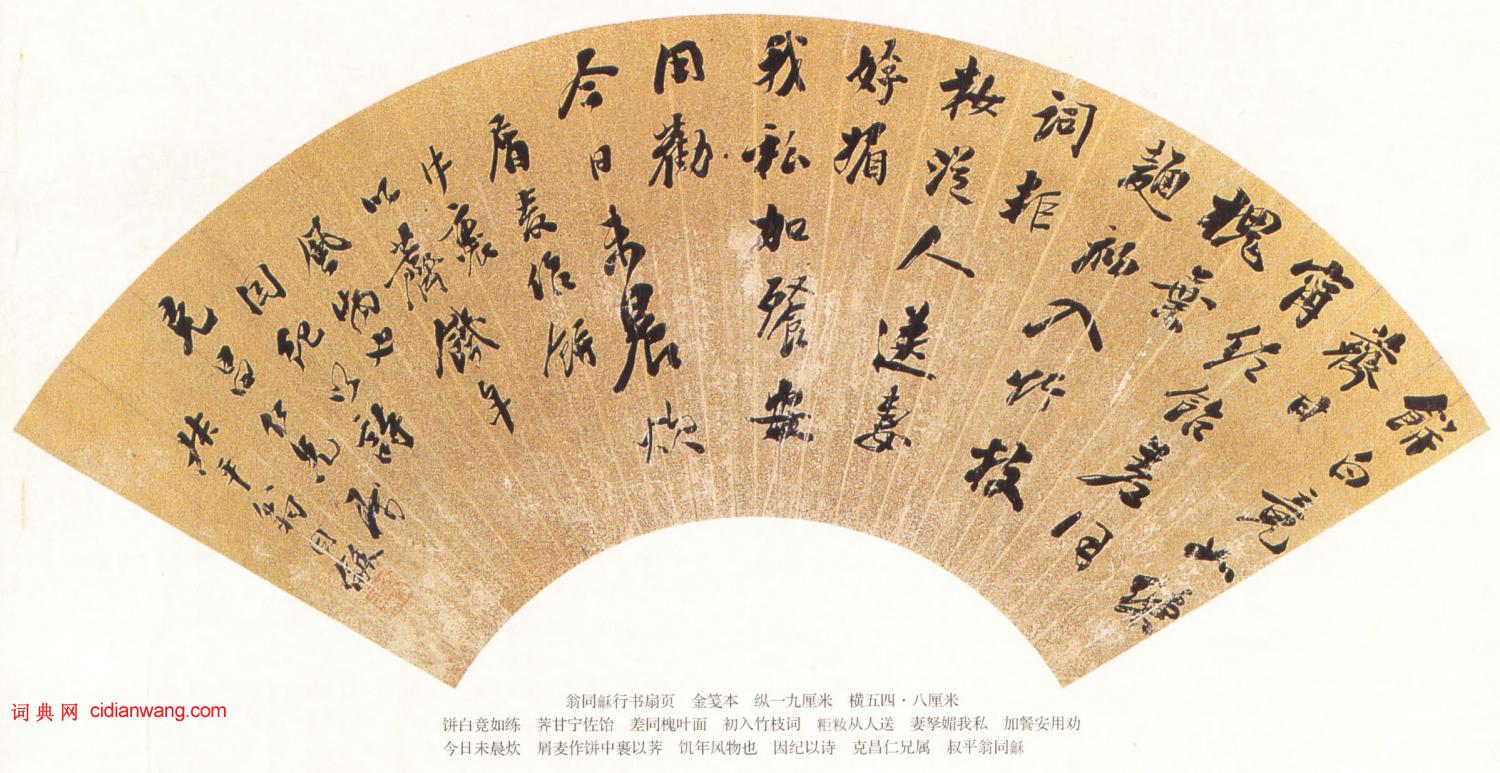 餅白竟如練
薺甘
甯佐飴差同
槐葉
麵初入竹枝
詞粔
籹從人送妻
孥媚
我私加餐安
用勸
今日未晨炊
屑麥作餅
中裹
以薺饑年
風物也
因紀以詩
克昌仁兄屬
叔平翁同龢
翁同龢行书扇页　金笺本　纵一九厘米　横五四·八厘米
饼白竟如练　荠甘宁佐饴　差同槐叶面　初入竹枝词　粔籹从人送　妻孥媚我私　加餐安用劝
今日未晨炊　屑麦作饼中裹以荠　饥年风物也　因纪以诗　克昌仁兄属　叔平翁同龢
词典网 cidianwang.com